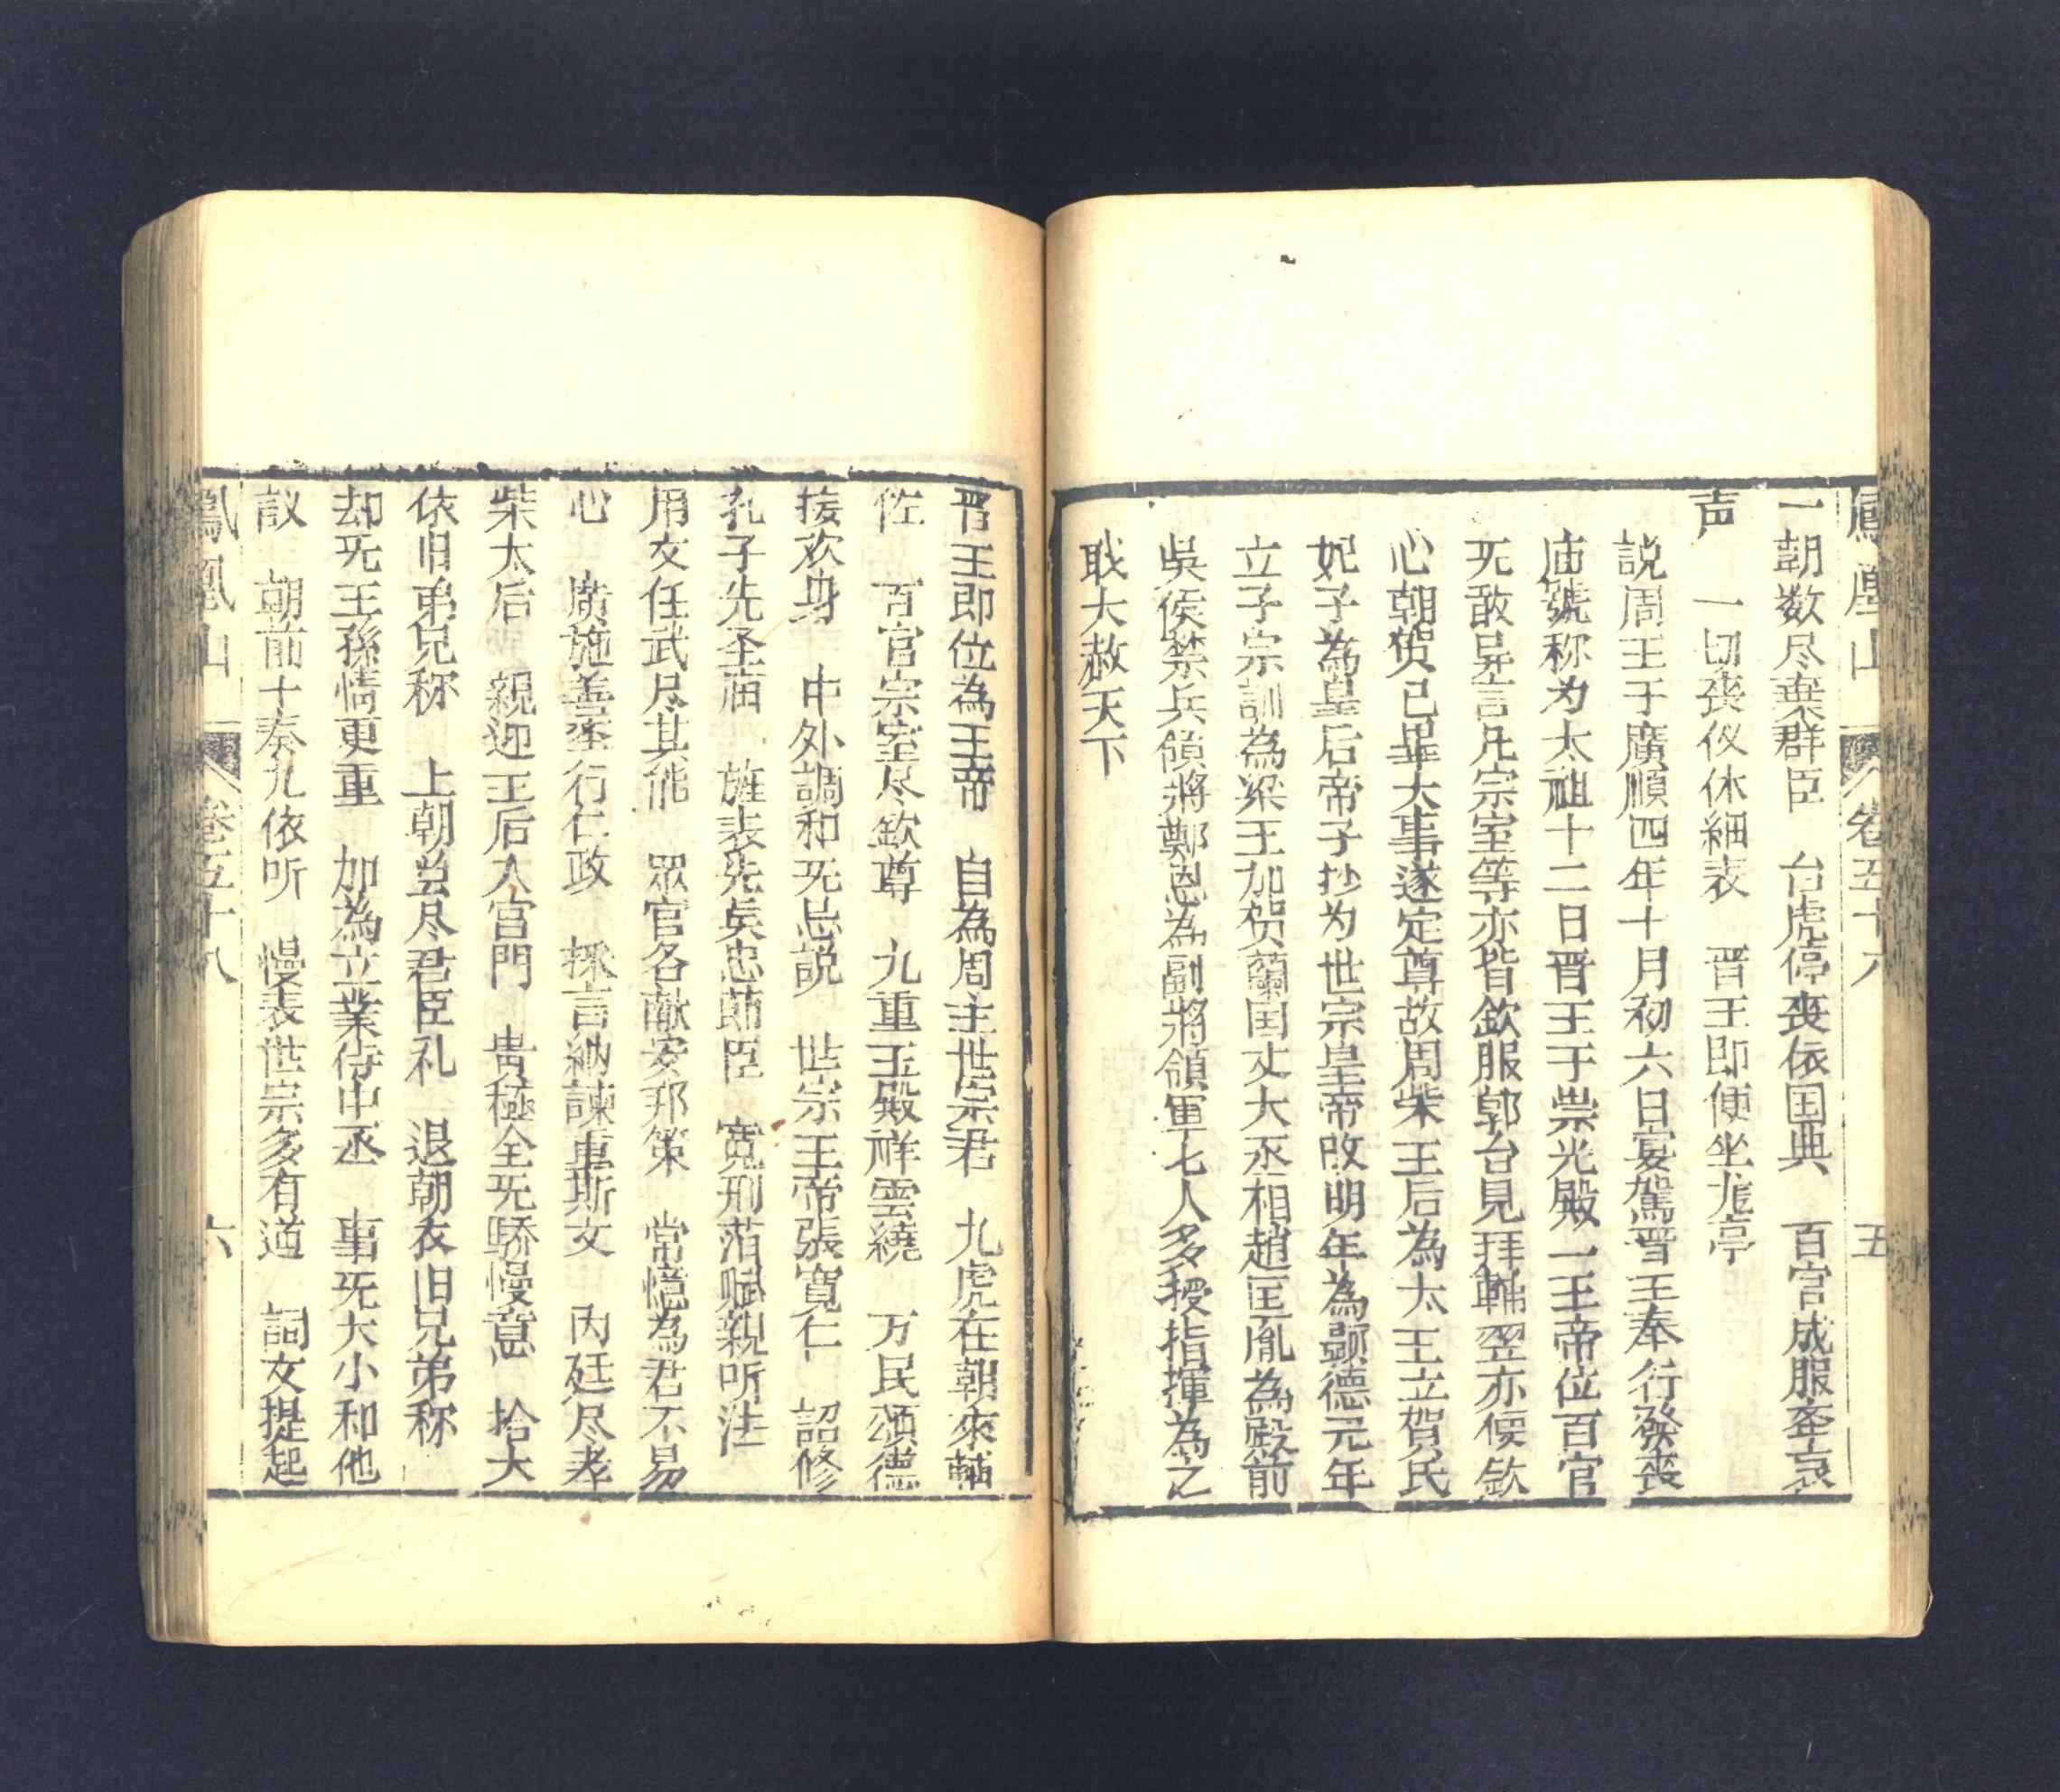 鳳凰山 卷五十八 五
一朝数尽棄群臣 台虎停丧依国典 百官成服奔哀
声 一切丧仪休細表 晋王即便坐龙亭
説周王于廣順四年十月初六日宴駕晋王奉行發丧
庙號称为太祖十二日晋王于崇光殿一王帝位百官
旡敢异言凡宗室等亦皆欽服郭台見拜輔翌亦便欽
心朝贺已畢大事遂定尊故周柴王后為太王立賀氏
妃子為皇后帝子抄为世宗皇帝改明年為顕德元年
立子宗訓為梁王加贺蘭国丈大丞相趙匡胤為殿前
吳侯禁兵領將鄭恩為副將領軍七人多授指揮為之
耺大赦天下
晋王即位為王帝 自為周主世宗君 九虎在朝來輔
佐 百官宗室尽欽尊 九重玉殿祥雲繞 万民頌德
接欢身 中外調和旡忌説 世宗王帝張寬仁 詔修
孔子先圣庙 旌表先矣忠節臣 寬刑薄赋親听法
用文任武尽其能 眾官各献安邦策 常憶為君不易
心 廣施善𫝊行仁政 採言納諫重斯文 内廷尽孝
柴太后 親迎王后入宫門 貴極全旡驕慢意 拾大
依旧弟兄称 上朝总尽君臣礼 退朝衣旧兄弟称
却旡王孫情更重 加為立業侍中丞 事旡大小和他
議 朝前十奏九依听 慢表世宗多有道 詞文提起
鳳凰山 卷五十八 六